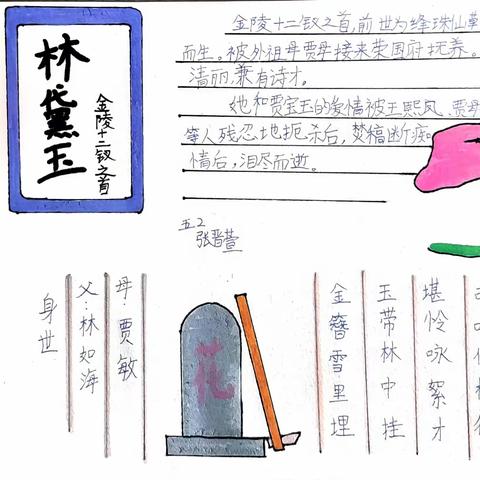 林黛玉
金陵十二钗之首
金陵十二钗之首,前世为绛珠仙草
而生。被外祖母贾母接来荣国府抚养。
清丽,兼有诗才。
她和贾宝玉的爱情被王熙凤、贾母
等人残忍地扼杀后,焚稿断痴
情后,泪尽而逝。
五2
张晋萱
身世
父:林如海
母:贾敏
花
堪怜咏絮才
玉带林中挂
金簪雪里埋